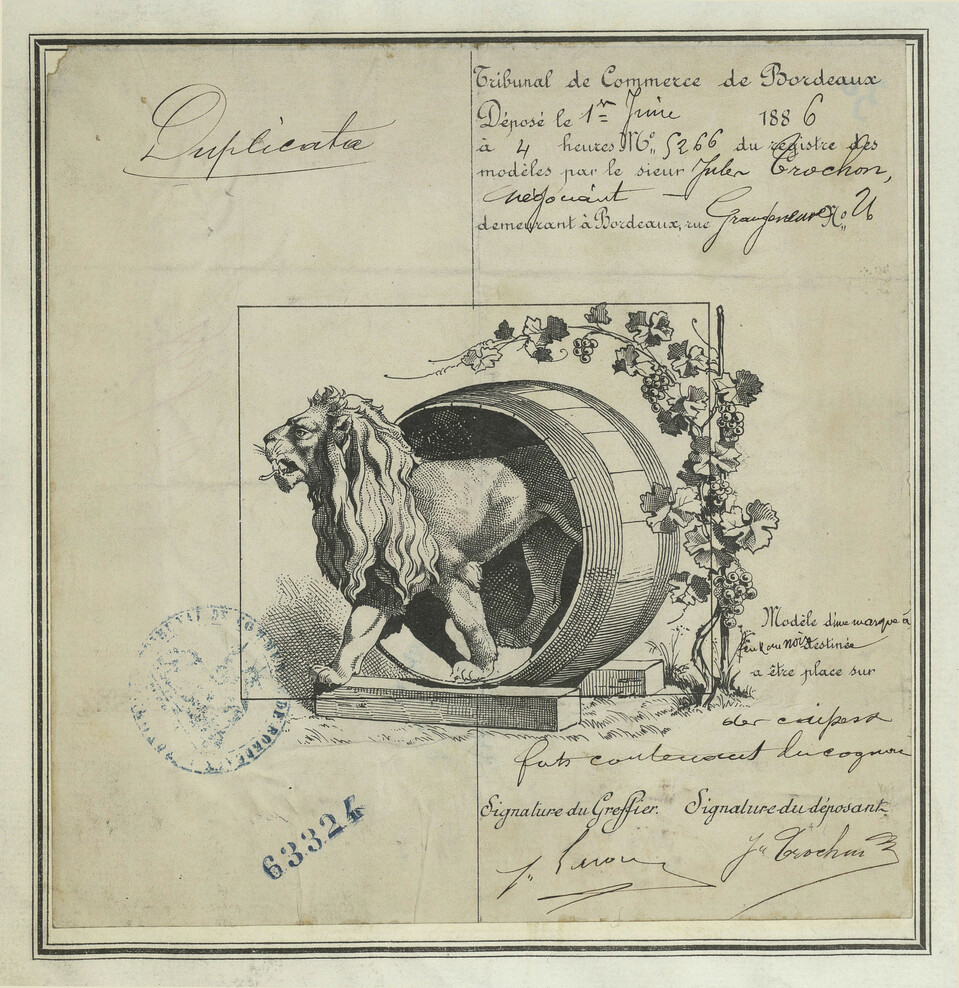 Duplicata
Tribunal de Commerce de Bordeaux
Déposé le 1er Juin 1886
à 4 heures No. 5266 du registre des
modèles par le sieur Jules Trochon,
négociant
demeurant à Bordeaux, rue No.
Modèle d'une marque à
feu ou noir destinée
a être place sur
des caisses ou
futs contenant du cognac
Signature du Greffier. Signature du déposant
Js Trochon
TRIBUNAL DE COMMERCE DE BORDEAUX
63324